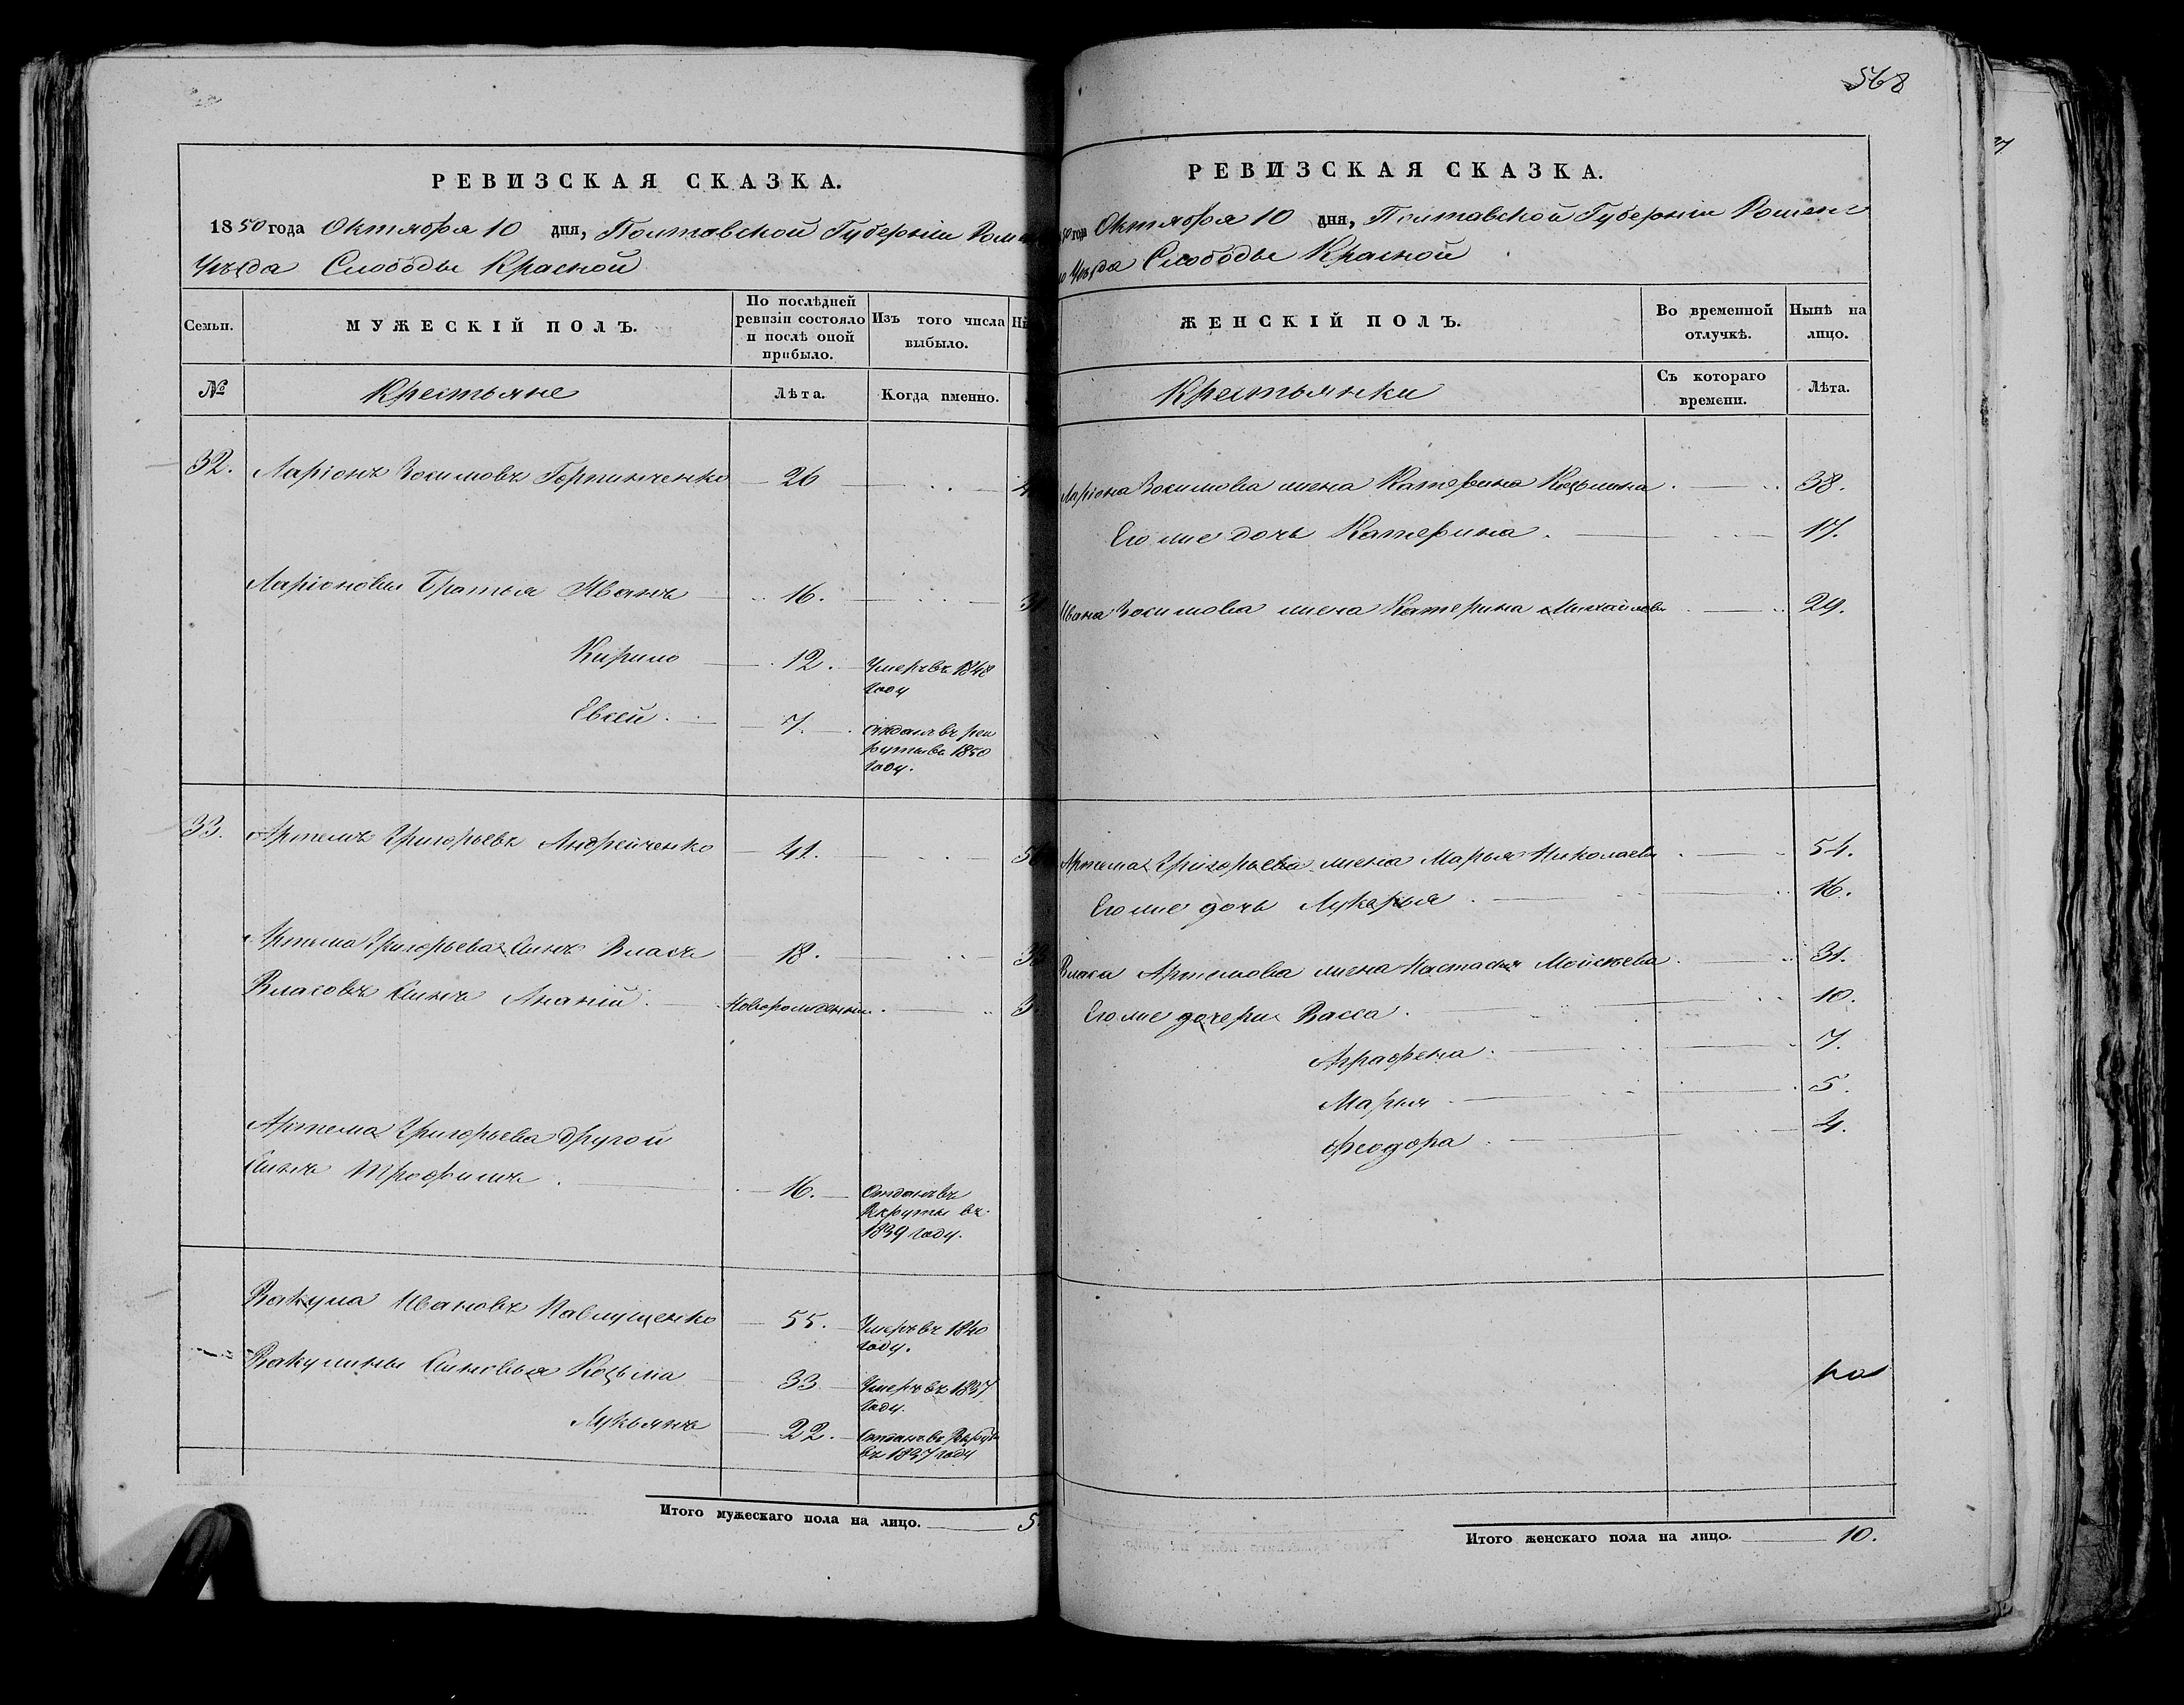 РЕВИЗСКАЯ СКАЗКА.
1850 года Октября 10 дня, Полтавской Губерніи
Уѣзда Слободы Красной
Семьи.
МУЖЕСКІЙ ПОЛЪ.
По послѣдней
ревизіи состояло
и послѣ оной
прибыло.
Изъ того числа
выбыло.
№
Крестьяне
Лѣта.
Когда именно.
32. Ларіонъ Зосимовъ Горпинченко 26
Ларіоновы Братья Иванъ 16.
Кирило 12. Умеръ въ 1848
году
Евсей. 7. Отданъ въ рек
руты въ 1850
году.
33. Артемъ Григорьевъ Андрейченко 41.
Артема Григорьева Сынъ Власъ 18.
Власовъ Сынъ Ананій. Новорожденный.
Артема Григорьева другой
Сынъ Трофимъ 16. Отданъ въ
Рекруты въ
1839 году.
Вакула Ивановъ Павлущенко 55. Умеръ въ 1840
году.
Вакулины Сыновья Козьма 33 Умеръ въ 1837
году.
Лукьянъ 22. Отданъ въ
въ 1837 году
Итого мужескаго пола на лицо. 5
568
РЕВИЗСКАЯ СКАЗКА.
года Октября 10 дня, Полтавской Губерніи Роменс
Уѣзда Слободы Красной
ЖЕНСКІЙ ПОЛЪ.
Во временной
отлучкѣ.
Нынѣ на
лицо.
Крестьянки
Съ котораго
времени.
Лѣта.
Ларіона Зосимова жена Катерина Козьмина 38.
Его же дочь Катерина. 17.
Ивана Зосимова жена Катерина Михайлова 29.
Артема Григорьева жена Марья Николаева 54.
Его же дочь Лукерья 16.
Власа Артемова жена Настасья Моисѣева 31.
Его же дочери Васса. 10.
Аграфена. 7.
Марья 5.
Феодора 4.
Итого женскаго пола на лицо. 10.